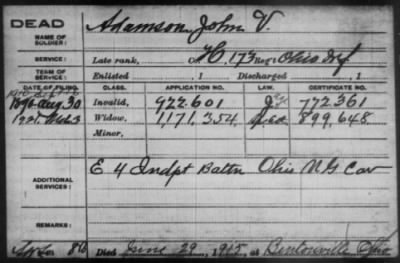 DEAD
Adamson, John V.
NAME OF SOLDIER:
SERVICE: Late rank, Co. H, 173 Reg't Ohio Inf
TERM OF SERVICE: Enlisted , 1 Discharged , 1
DATE OF FILING. CLASS. APPLICATION NO. LAW. CERTIFICATE NO.
1890 Aug 30 Invalid, 922.601 772.361
1921 Widow, 1,171,354 899,648
Minor,
ADDITIONAL SERVICES: E 4 Indpt Battn Ohio N G Cav
REMARKS:
Died June 29, 1915, at Bentonville Ohio